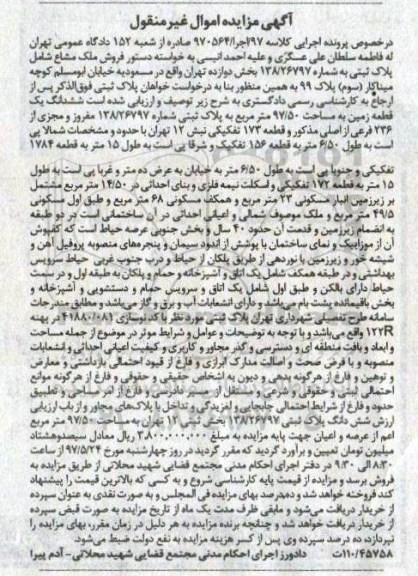 آگهی مزایده اموال غیرمنقول
درخصوص پرونده اجرایی کلاسه ۲۹۷اجرا/۹۷۰۵۶۴ صادره از شعبه ۱۵۲ دادگاه عمومی تهران
له فاطمه سلطان علی عسگری و علیه احمد انیسی به خواسته دستور فروش ملک مشاع شامل
پلاک ثبتی به شماره ۱۳۸/۲۶۷۹۷ بخش دوازده تهران واقع در مسعودیه خیابان ابومسلم کوچه
میناکار (سوم) پلاک ۹۹ به همین منظور بنا به درخواست خواهان پلاک ثبتی فوق‌الذکر پس از
ارجاع به کارشناسی رسمی دادگستری به شرح زیر توصیف و ارزیابی شده است ششدانگ یک
قطعه زمین به مساحت ۹۷/۵۰ متر مربع به پلاک ثبتی شماره ۱۳۸/۲۶۷۹۷ مفروز و مجزی از
۲۳۶ فرعی از اصلی مذکور و قطعه ۱۷۳ تفکیکی نبش ۱۲ تهران با حدود و مشخصات شمالا پی
است به طول ۶/۵۰ متر به قطعه ۱۵۶ تفکیک و شرقا پی است به طول ۱۵ متر به قطعه ۱۷۸۴
تفکیکی و جنوبا پی است به طول ۶/۵۰ متر به خیابان به عرض ده متر و غربا پی است به طول
۱۵ متر به قطعه ۱۷۲ تفکیکی و اسکلت نیمه فلزی و بنای احداثی در ۱۴/۵۰ متر مربع مشتمل
بر زیرزمین انبار مسکونی ۲۳ متر مربع و همکف مسکونی ۶۸ متر مربع و طبق اول مسکونی
۴۹/۵ متر مربع و ملک موصوف شمالی و اعیانی احداثی در آن ساختمانی است در دو طبقه
به انضمام زیرزمین و قدمت آن حدود ۴۰ سال و بخش جنوبی عرصه حیاط است که کفپوش
آن از موزاییک و نمای ساختمان با پوشش از اندود سیمان و پنجره‌های منصوبه پروفیل آهن و
شیشه خور و زیرزمین با نوردهی از طریق پلکان از حیاط و درب جنوب غربی حیاط سرویس
بهداشتی و در طبقه همکف شامل یک اتاق و آشپزخانه و حمام و پلکان به طبقه اول و در سمت
حیاط دارای بالکن و طبق اول شامل یک اتاق و سرویس حمام و دستشویی و آشپزخانه و
بخش باقیمانده پشت بام می‌باشد و دارای انشعابات آب و برق و گاز می‌باشد و مطابق مندرجات
سامانه طرح تفصیلی شهرداری تهران پلاک ثبتی مورد نظر با کد نوسازی ۴۱۸۸۰/۰۸۱ در پهنه
R۱۲۲ واقع می‌باشد و با توجه به توضیحات و عوامل و شرایط موثر در موضوع از جمله مساحت
و ابعاد و بافت منطقه ای و دسترسی و گذر مجاور و کاربری و کیفیت اعیانی احداثی و انشعابات
منصوبه و با فرض صحت و اصالت مدارک ابرازی و فارغ از قیود احتمالی بازداشتی و معارض
و توهین و فارغ از هرگونه بدهی و دیون به اشخاص حقیقی و حقوقی و فارغ از هرگونه موانع
احتمالی ثبتی و حقوقی و شرعی و نقل از مسیر دادرسی و فارغ از امر مساحی و تطبیق
حدود و فارغ از شرایط احتمالی جابجایی و لغزیدگی و تداخل با پلاک‌های مجاور و از باب ارزیابی
ارزش شش دانگ پلاک ثبتی ۱۳۸/۲۶۷۹۷ بخش ثبتی ۱۲ تهران به مساحت ۹۷/۵۰ متر مربع
اعم از عرصه و اعیان جهت پایه مزایده به مبلغ ۳.۸۰۰.۰۰۰.۰۰۰ ریال معادل سیصدوهشتاد
میلیون تومان تعیین و برآورد گردید که مقرر گردید در روز چهارشنبه مورخ ۹۷/۵/۲۴ از ساعت
۸:۳۰ الی ۹:۳۰ در دفتر اجرای احکام مدنی مجتمع قضایی شهید محلاتی از طریق مزایده به
فروش برسد و مزایده از قیمت پایه کارشناسی شروع و به کسی که بالاترین قیمت را پیشنهاد
کند فروخته خواهد شد و ده‌درصد بهای مزایده فی المجلس و به صورت نقدی به عنوان سپرده
از خریدار دریافت می‌شود و مابقی ظرف مدت یک ماه از تاریخ مزایده به صورت قبض سپرده
از خریدار دریافت خواهد شد و چنانچه برنده مزایده به هر دلیل در زمان مقرر، بهای مزایده را
نپردازد ده درصد سپرده وی پس از کسر هزینه مزایده به نفع دولت ضبط می‌شود.
۱۱۰/۴۵۷۵۸ت دادورز اجرای احکام مدنی مجتمع قضایی شهید محلاتی - آدم پیرا